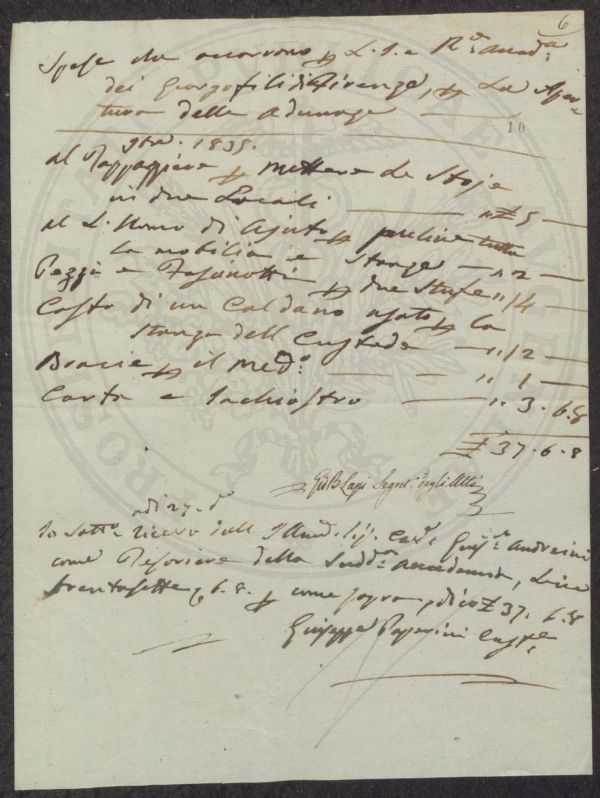 6
Spese che occorrono p L'I. e R.e Accad.a
dei Georgofili di Firenze, p La Aper=
tura delle Adunanze
10
9bre. 1835.
Al Tappezziere p mettere Le Stoje
in due Locali — „ £ 5 —
Al L. Uomo di Ajuto p pulire tutta
la mobilia e Stanze — „ 2 —
Pezzi e Fascinotti p due Stufe „ 14 —
Costo di un Caldano usato p la
Stanza dell Custode — „ 12 —
Bracie p il Med.o — „ 1 —
Carta e Inchiostro — „ 3. 6. 8
£ 37. 6. 8
Segret. degli Atti
adi 27. d.o
Io Sott.o ricevo dall' Cav.e Gius.e Andreini
come Tesoriere della Sudd.a Accademia, Lire
trentasette 6. 8. p come sopra, dico £ 37. 6. 8
Giuseppe Cust.e